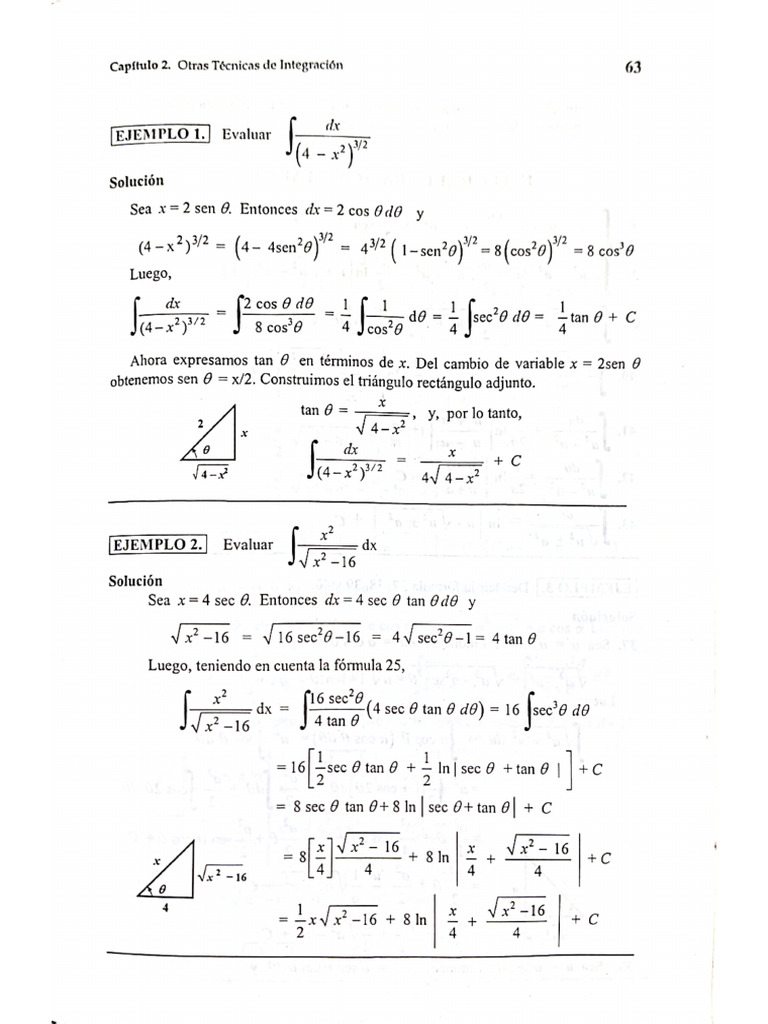 Capítulo 2. Otras Técnicas de Integración 63
EJEMPLO 1. Evaluar ∫ dx / (4 − x²)^{3/2}
Solución
Sea x = 2 sen θ. Entonces dx = 2 cos θ dθ y
(4 − x²)^{3/2} = (4 − 4sen²θ)^{3/2} = 4^{3/2} (1 − sen²θ)^{3/2} = 8(cos²θ)^{3/2} = 8 cos³θ
Luego,
∫ dx / (4 − x²)^{3/2} = ∫ 2 cos θ dθ / 8 cos³θ = 1/4 ∫ 1/cos²θ dθ = 1/4 ∫ sec²θ dθ = 1/4 tan θ + C
Ahora expresamos tan θ en términos de x. Del cambio de variable x = 2sen θ
obtenemos sen θ = x/2. Construimos el triángulo rectángulo adjunto.
2 x θ √(4 − x²)
tan θ = x / √(4 − x²), y, por lo tanto,
∫ dx / (4 − x²)^{3/2} = x / 4√(4 − x²) + C
EJEMPLO 2. Evaluar ∫ x² / √(x² − 16) dx
Solución
Sea x = 4 sec θ. Entonces dx = 4 sec θ tan θ dθ y
√(x² − 16) = √(16 sec²θ − 16) = 4√(sec²θ − 1) = 4 tan θ
Luego, teniendo en cuenta la fórmula 25,
∫ x² / √(x² − 16) dx = ∫ 16 sec²θ / 4 tan θ (4 sec θ tan θ dθ) = 16 ∫ sec³θ dθ
= 16[1/2 sec θ tan θ + 1/2 ln | sec θ + tan θ |] + C
= 8 sec θ tan θ + 8 ln | sec θ + tan θ | + C
x √(x² − 16) θ 4
= 8[x/4] √(x² − 16)/4 + 8 ln | x/4 + √(x² − 16)/4 | + C
= 1/2 x√(x² − 16) + 8 ln | x/4 + √(x² − 16)/4 | + C